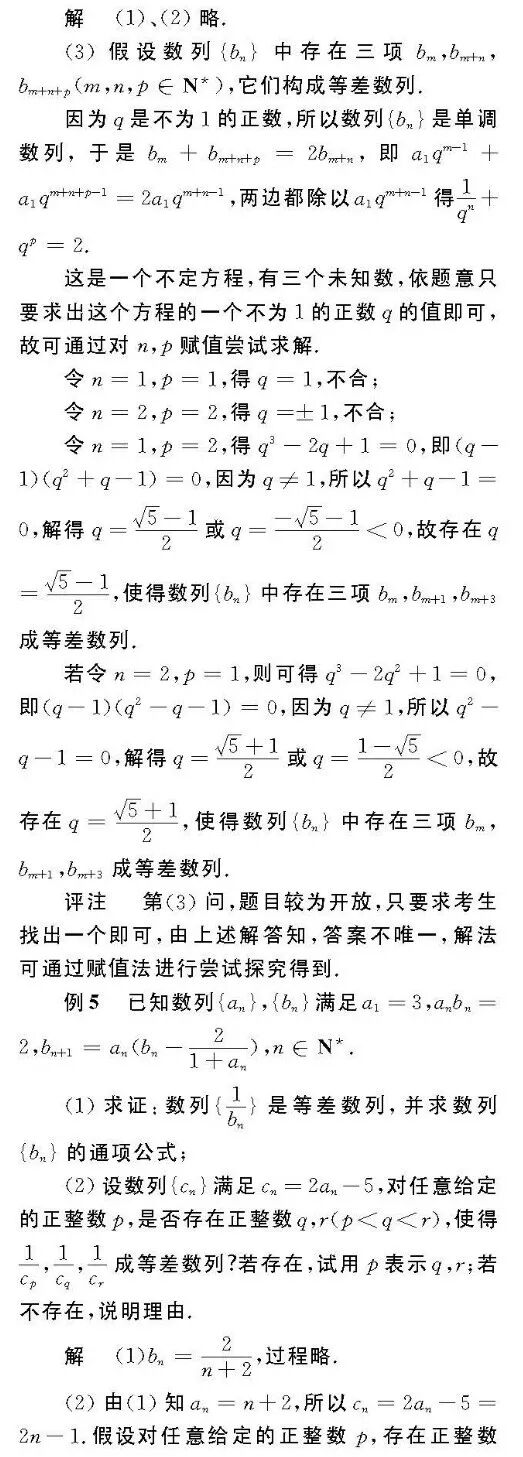 解 (1)、(2)略.
(3) 假设数列{bₙ} 中存在三项 bₘ,bₘ₊ₙ,
bₘ₊ₙ₊ₚ(m,n,p ∈ N*),它们构成等差数列.
因为 q 是不为 1 的正数,所以数列{bₙ}是单调
数列, 于是 bₘ + bₘ₊ₙ₊ₚ = 2bₘ₊ₙ, 即 a₁q^{m-1} +
a₁q^{m+n+p-1} = 2a₁q^{m+n-1},两边都除以a₁q^{m+n-1} 得\frac{1}{q^n} +
q^p = 2.
这是一个不定方程,有三个未知数,依题意只
要求出这个方程的一个不为 1 的正数 q 的值即可,
故可通过对 n,p 赋值尝试求解.
令 n = 1,p = 1,得 q = 1,不合;
令 n = 2,p = 2,得 q =± 1,不合;
令 n = 1,p = 2,得 q³ − 2q + 1 = 0,即(q −
1)(q² + q − 1) = 0,因为 q ≠ 1,所以 q² + q − 1 =
0,解得 q = \frac{\sqrt{5} − 1}{2} 或 q = \frac{−\sqrt{5} − 1}{2} < 0,故存在 q
= \frac{\sqrt{5} − 1}{2},使得数列{bₙ} 中存在三项 bₘ,bₘ₊₁,bₘ₊₃
成等差数列.
若令 n = 2,p = 1,则可得 q³ − 2q² + 1 = 0,
即(q − 1)(q² − q − 1) = 0,因为 q ≠ 1,所以 q² −
q − 1 = 0,解得 q = \frac{\sqrt{5} + 1}{2} 或 q = \frac{1 − \sqrt{5}}{2} < 0,故
存在 q = \frac{\sqrt{5} + 1}{2},使得数列{bₙ} 中存在三项 bₘ,
bₘ₊₁,bₘ₊₃ 成等差数列.
评注 第(3) 问,题目较为开放,只要求考生
找出一个即可,由上述解答知,答案不唯一,解法
可通过赋值法进行尝试探究得到.
例 5 已知数列{aₙ},{bₙ}满足a₁ = 3,aₙbₙ =
2,bₙ₊₁ = aₙ(bₙ − \frac{2}{1 + aₙ}),n ∈ N*.
(1) 求证:数列{\frac{1}{bₙ}} 是等差数列, 并求数列
{bₙ} 的通项公式;
(2) 设数列{cₙ}满足 cₙ = 2aₙ − 5,对任意给定
的正整数 p,是否存在正整数 q,r(p < q < r),使得
\frac{1}{c_p},\frac{1}{c_q},\frac{1}{c_r} 成等差数列?若存在,试用 p 表示q,r;若
不存在,说明理由.
解 (1)bₙ = \frac{2}{n + 2},过程略.
(2) 由(1) 知 aₙ = n + 2,所以 cₙ = 2aₙ − 5 =
2n − 1. 假设对任意给定的正整数 p,存在正整数